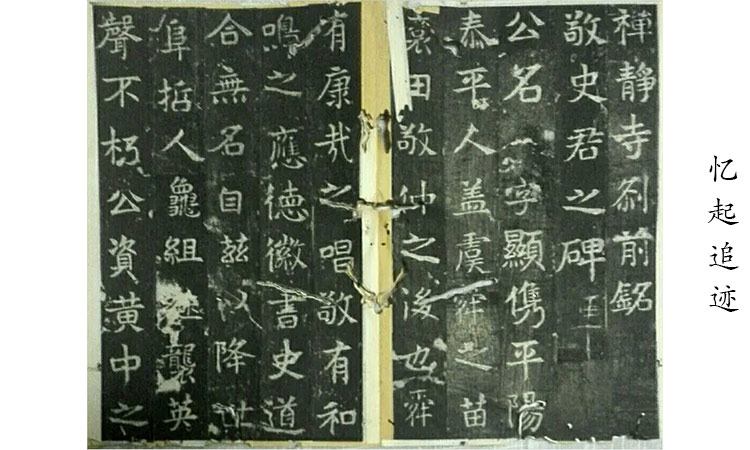 禅静寺刹前銘
敬史君之碑
公名一字顯儁平陽
泰平人盖虞舜之苗
裏田敬仲之後也舜
有康哉之唱敬有和
鳴之應徳徽書史道
合無名自茲以降世
阜哲人龜組継襲英
聲不朽公資黄中之
忆起追迹